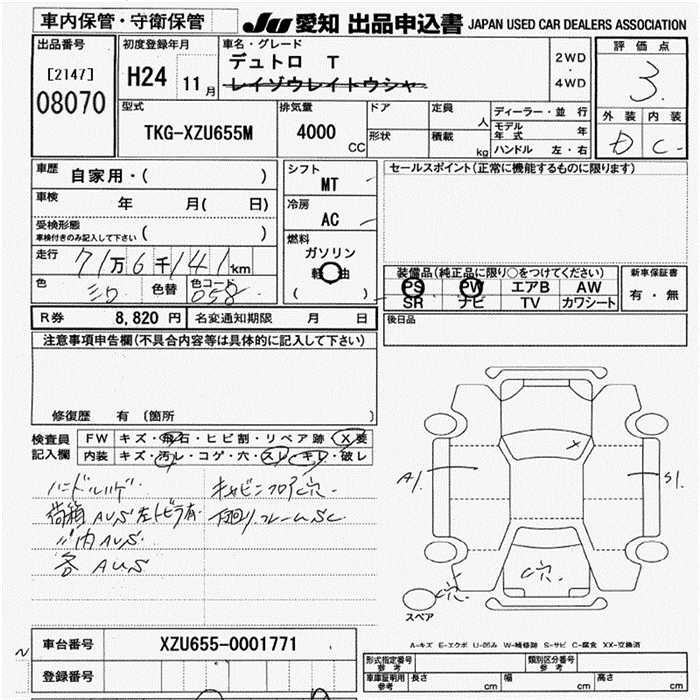 車内保管・守衛保管 JU 愛知 出品申込書 JAPAN USED CAR DEALERS ASSOCIATION
出品番号 初度登録年月 車名・グレード 評価点
[2147] H24 11月 デュトロ T 2WD・4WD 3
08070 レイゾウレイトウシャ
型式 排気量 ドア 定員 人 ディーラー・並行 外装 内装
TKG-XZU655M 4000 CC 形状 積載 kg モデル年式 年 D C-
ハンドル 左・右
車歴 自家用・( ) シフト MT セールスポイント(正常に機能するものに限ります)
車検 年 月( 日) 冷房 AC
受検形態 車検付きのみ記入して下さい ( ) 燃料 ガソリン
走行 71万6千141km 軽油
色 シロ 色替 色コード 058 ( )
装備品(純正品に限り○をつけてください) 新車保証書
PS PW エアB AW 有・無
SR ナビ TV カワシート
R券 8,820円 名変通知期限 月 日 後日品
注意事項申告欄(不具合内容等は具体的に記入して下さい)
修復歴 有 (箇所 )
検査員記入欄 FW キズ・飛石・ヒビ割・リペア跡 X要
内装 キズ・汚レ・コゲ・穴・スレ・キレ・破レ
ハンドルハゲ キャビンフロアC穴
荷箱AUS左トビラ有 下回リフレームSC
〃内AUS
各AUS
X
A1 S1
C穴 C穴
スペア
A-キズ E-エクボ U-凹み W-補修跡 S-サビ C-腐食 XX-交換済
車台番号 XZU655-0001771
登録番号
型式指定番号 参考 類別区分番号 参考
車庫証明用 参考 長さ cm 幅 cm 高さ cm